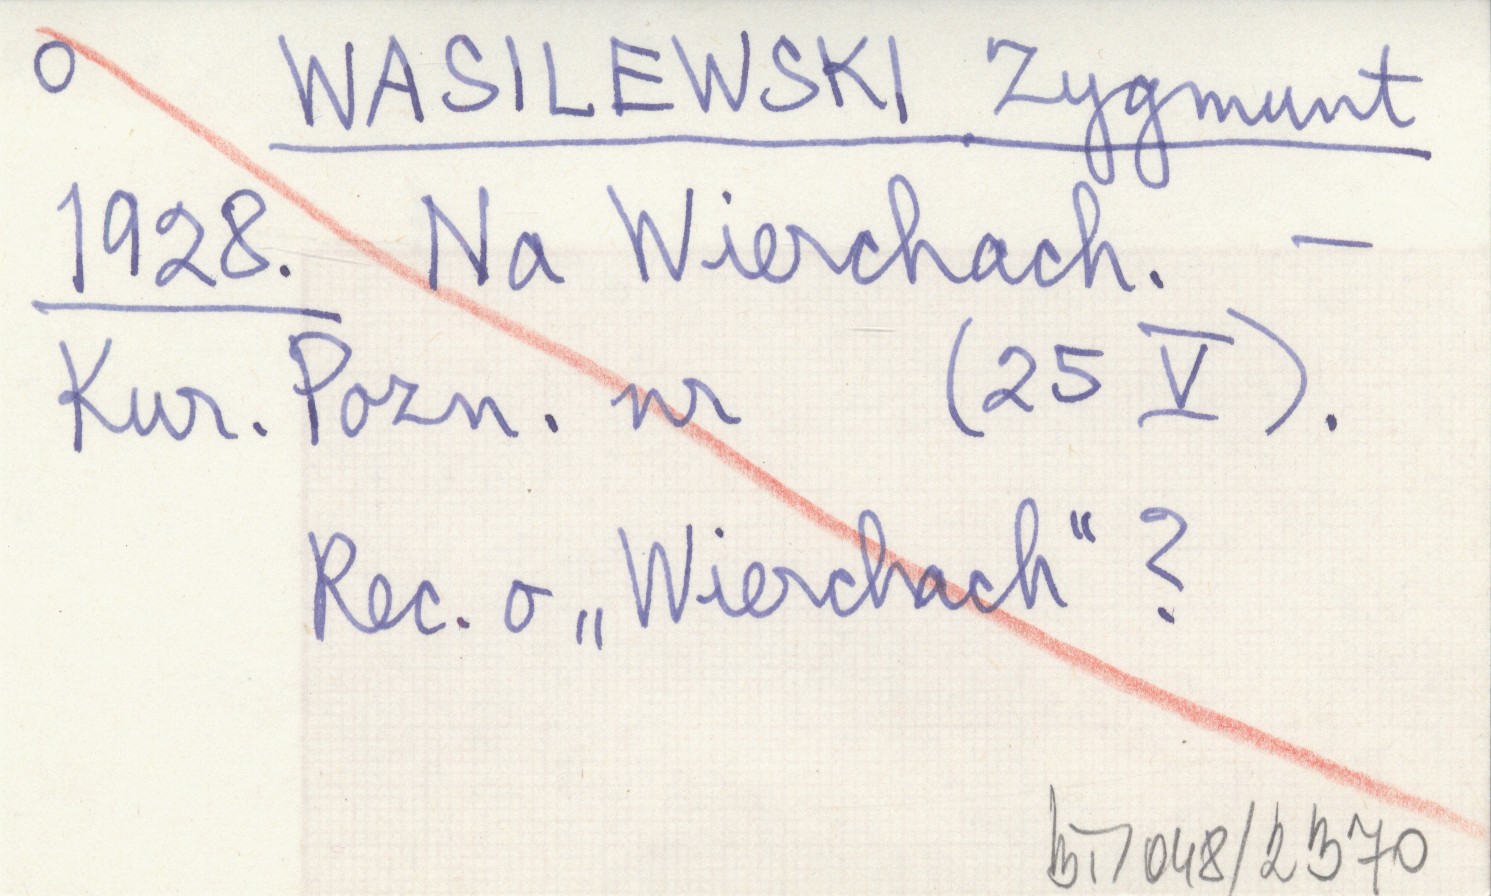 o WASILEWSKI Zygmunt
1928. Na Wierchach. —
Kur. Pozn. nr (25 V).
Rec. o „Wierchach“ ?
048/2370